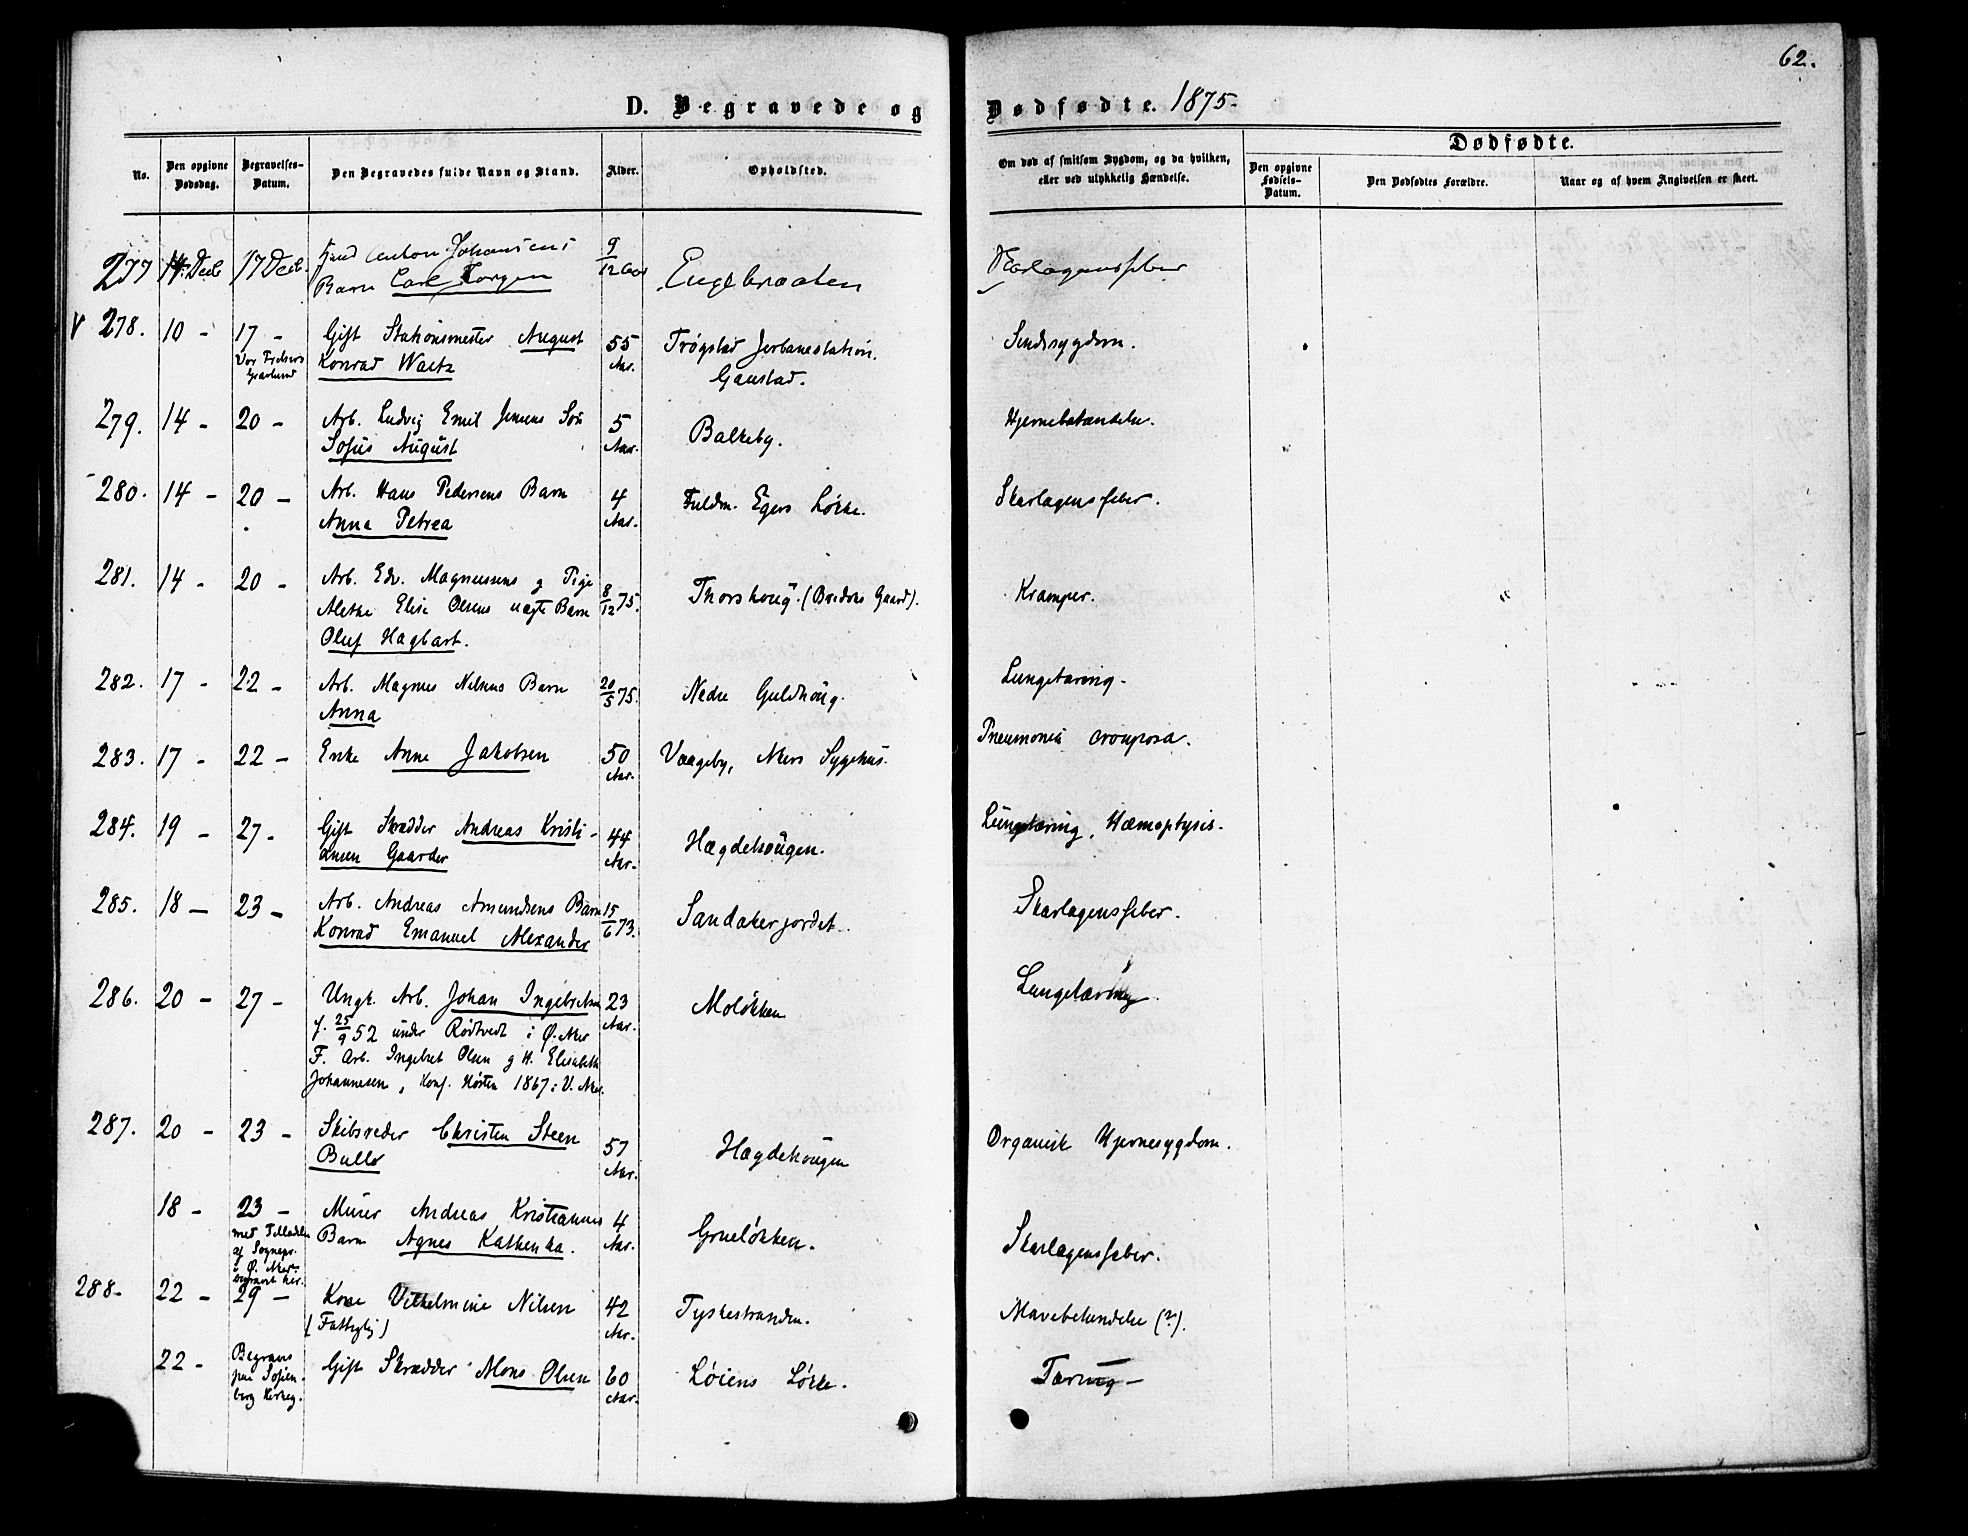 62.
D. Begravede og Dødfødte. 1875.
No.
Den opgivne Dødsdag.
Begravelses-Datum.
Den Begravedes fulde Navn og Stand.
Alder.
Opholdsted.
Om død af smitsom Sygdom, og da hvilken, eller ved ulykkelig Hændelse.
Dødfødte.
Den opgivne Fødsels-Datum.
Den Dødfødtes Forældre.
Naar og af hvem Angivelsen er skeet.
277 14 Decb 17 Decb. Anton Johansens 9/12
Barn Carl Jørgen Engebraaten Skarlagensfeber
278. 10 - 17 - Gift Stationsmester August 55 Trøgstad Jerbanestation. Sindssygdom.
Vor Frelsers Gravlund Konrad Waetz Aar. Gaustad.
279. 14 - 20 - Arb. Ludvig Emil Jensens Søn 5 Balkeby. Hjernebetændelse.
Sofus August Aar.
280. 14 - 20 - Arb. Hans Pedersens Barn 4 Fuldm. Egers Løkke. Skarlagensfeber.
Anna Petrea Aar.
281. 14 - 20 - Arb. Edv. Magnussens og Pige 8/12 75. Thorshoug (Gaard). Kramper.
Alethe Elise Olsens uægte Barn
Oluf Hagbart.
282. 17 - 22 - Arb. Magnus Nilsens Barn 20/5 75. Nedre Guldhoug. Lungetæring.
Anna
283. 17 - 22 - Enke Anne Jakobsen 50 Aar. Vaageby, Akers Sygehus. Pneumonia crouposa.
284. 19 - 27 - Gift Skrædder Andreas Kristi- 44 Hægdehougen. Lungetæring, Hæmoptysis.
ansen Gaarder Aar.
285. 18 - 23 - Arb. Andreas Amundsens Barn 15/6 73. Sandakerjordet. Skarlagensfeber.
Konrad Emanuel Alexander
286. 20 - 27 - Ungk. Arb. Johan Ingebretsen 23 Moløkken Lungetæring.
f. 25/9 52 under Rødtvedt i Ø. Aker Aar.
F. Arb. Ingebret Olsen og H. Elisabeth
Johannesen, Konf. Høsten 1867 i V. Aker.
287. 20 - 23 - Skibsreder Christen Steen 57 Hægdehougen Organisk Hjernesygdom.
Bull Aar.
18 - 23 - Murer Andreas Kristiansens 4 Grueløkken. Skarlagensfeber.
med Tilladelse af Sognepr. i Ø. Aker begravet her. Barn Agnes Kathinka. Aar.
288. 22 - 29 - Kone Vilhelmine Nilsen 42 Tyskestranden. Mavebetændelse (?).
(Fattiglig) Aar.
22 - Begraves paa Sofienberg Kirkeg. Gift Skrædder Mons Olsen 60 Aar. Løiens Løkke. Tæring -